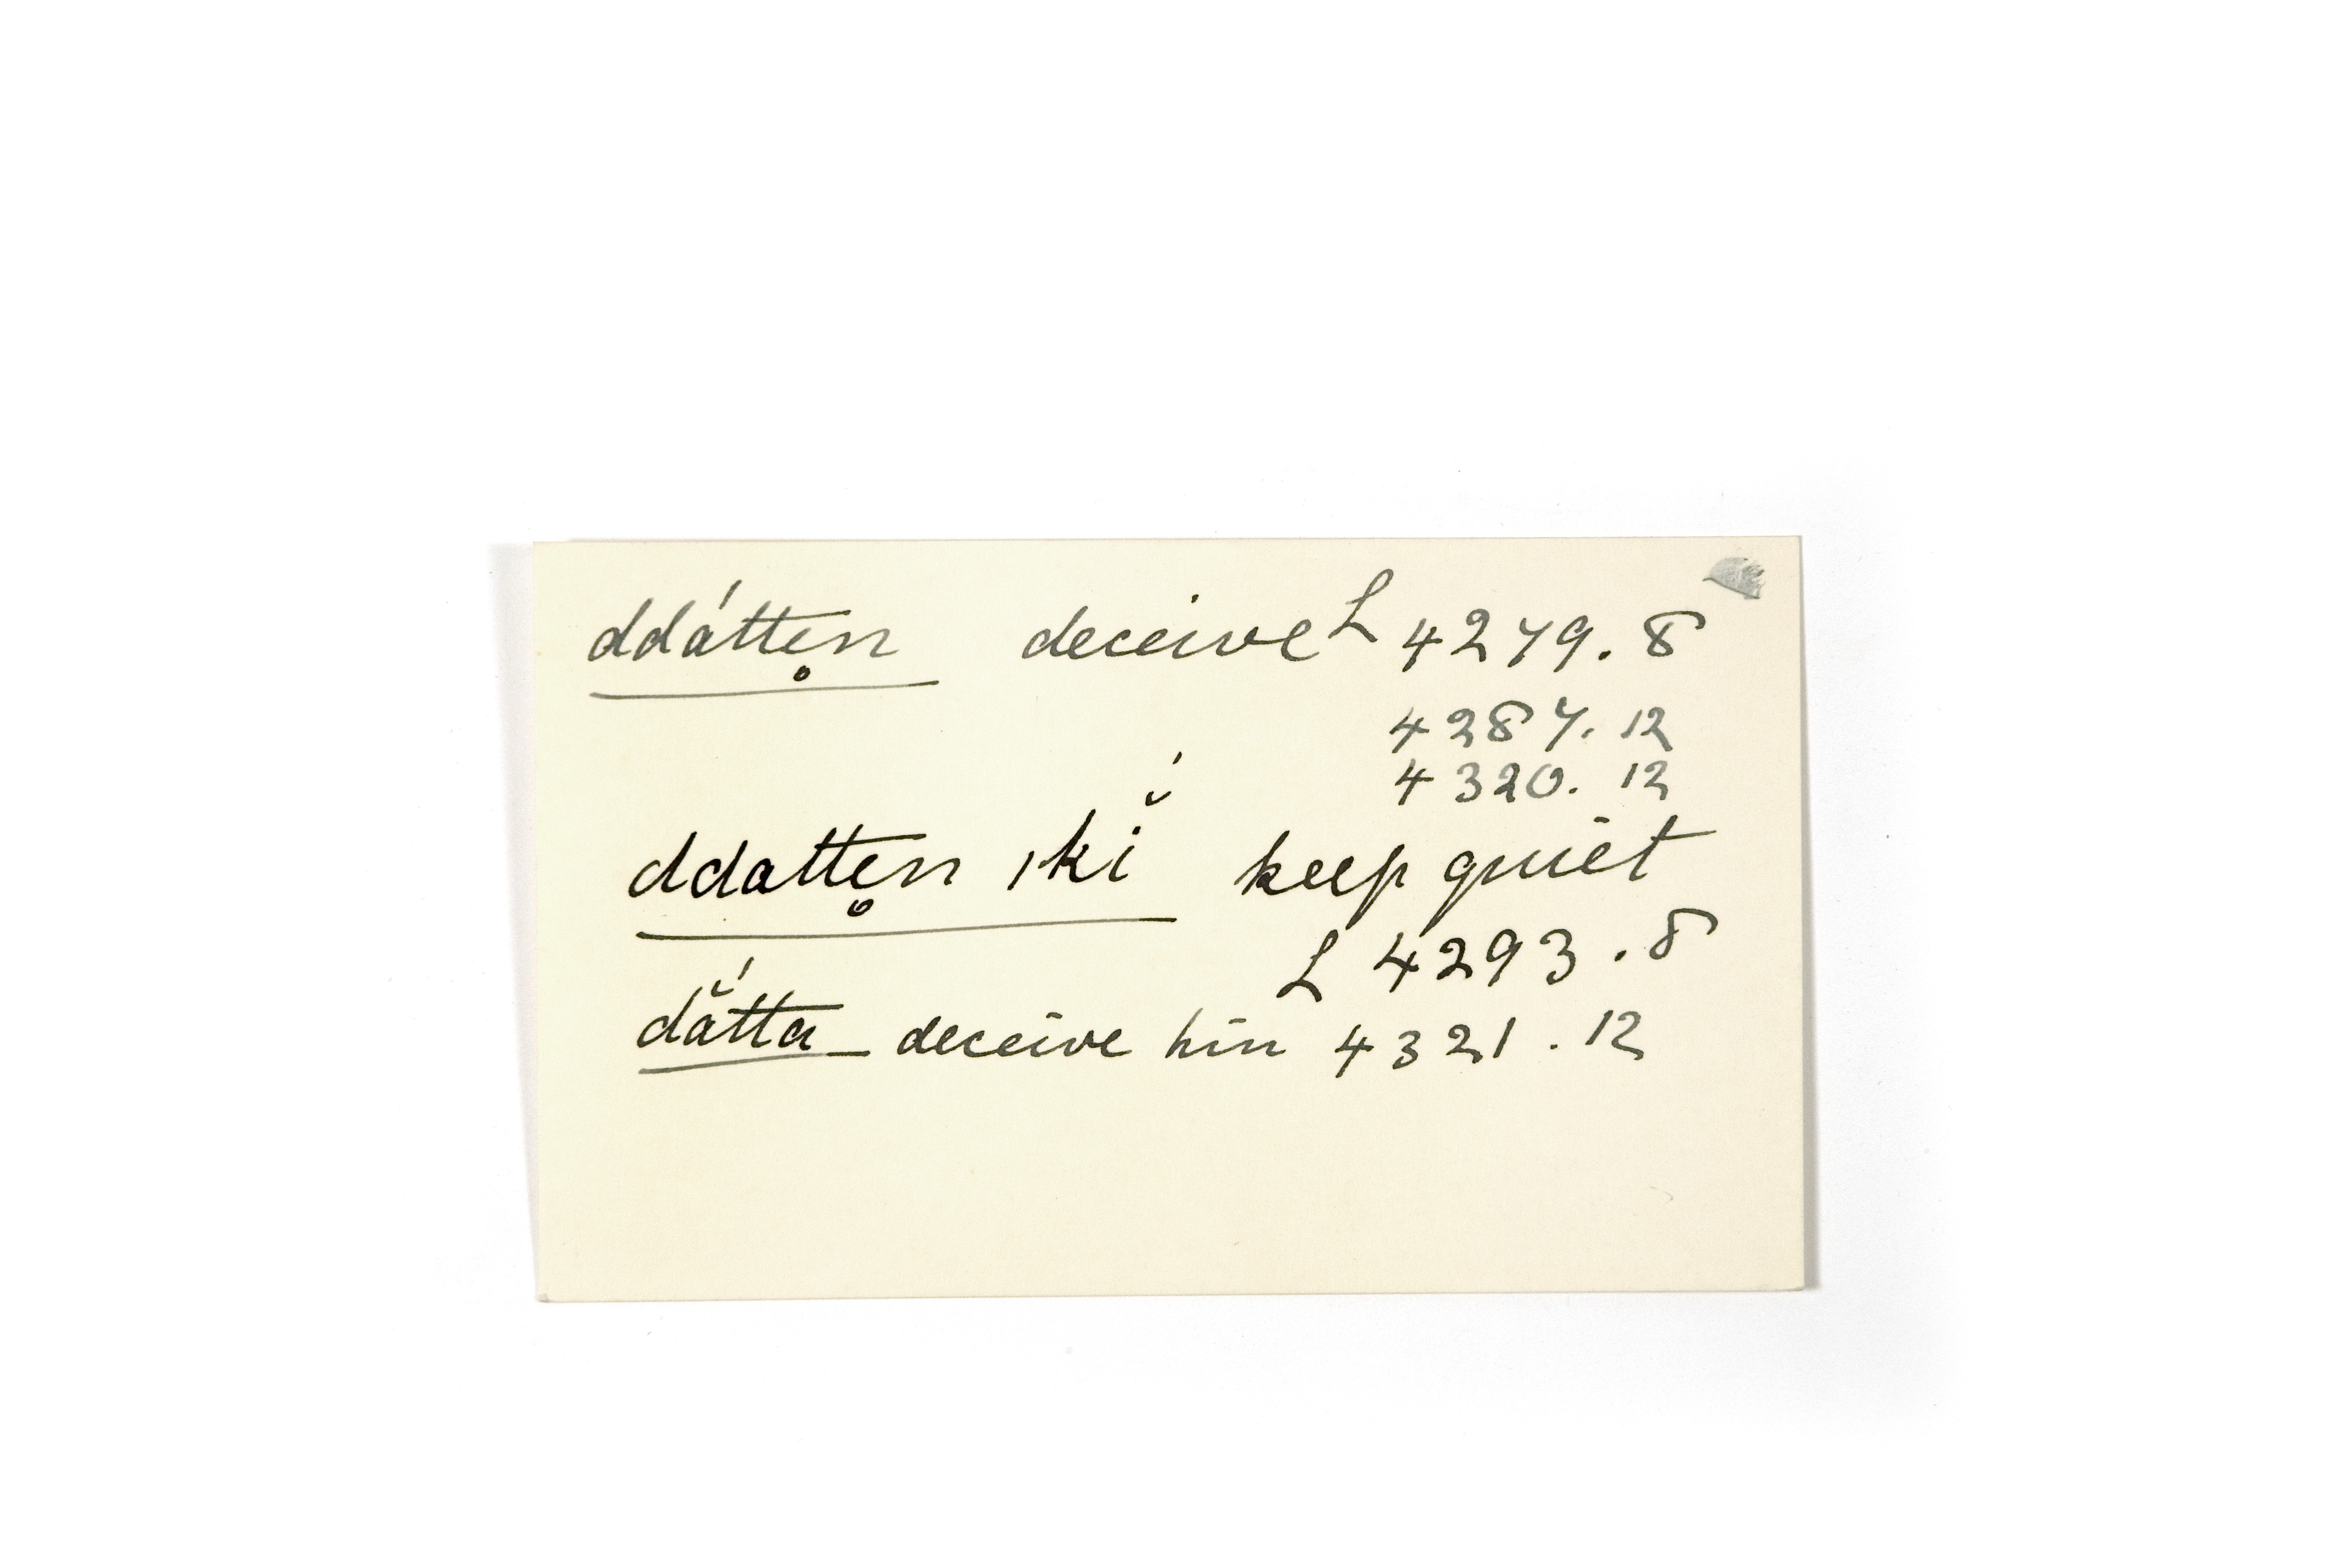 ddátte̥n deceive L 4279.8
4287.12
4320.12
ddatte̥n ǀkĭ́ keep quiet
L 4293.8
dắtta_ deceive him 4321.12